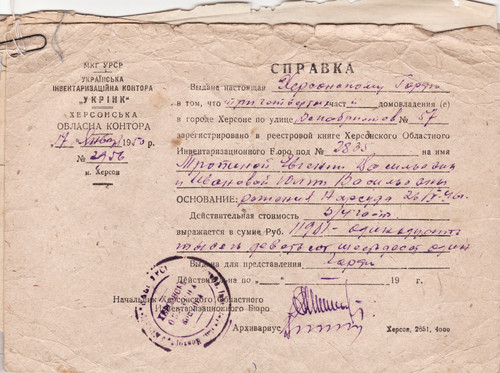 МКГ УРСР
УКРАЇНСЬКА
ІНВЕНТАРИЗАЦІЙНА КОНТОРА
"УКРІНК"
ХЕРСОНСЬКА
ОБЛАСНА КОНТОРА
17 1950 р.
№ 2956
м. Херсон
СПРАВКА
Выдана настоящая Херсонскому Горфо
в том, что три четверти части домовладения (е)
в городе Херсоне по улице Декабристов № 57
зарегистрировано в реестровой книге Херсонского Областного
Инвентаризационного Бюро под № 2835 на имя
Евгении Васильевны
и Ивановой Васильевны
ОСНОВАНИЕ: решения Нарсуда
Действительная стоимость
выражается в сумме Руб. одинадцать
тысяч девятьсот шестьдесят один
Выдана для представления Горфо
Действительна по 19 г.
Начальник Херсонского Областного
Инвентаризационного Бюро
Архивариус
Херсон, 2651, 4000